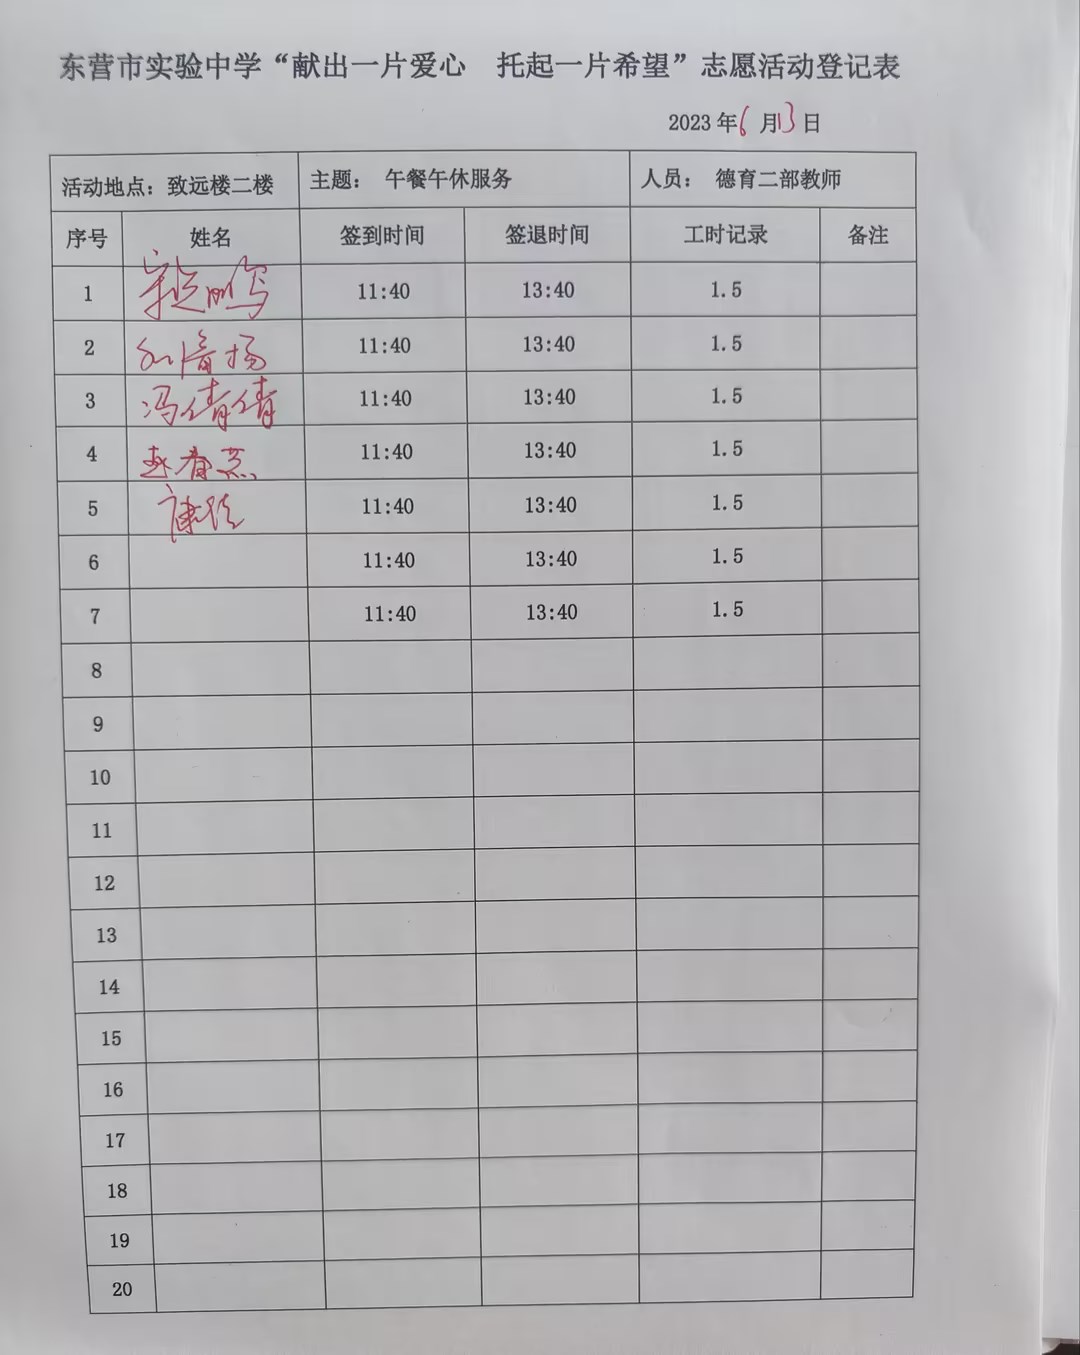 东营市实验中学“献出一片爱心 托起一片希望”志愿活动登记表
2023 年6月13日
活动地点：致远楼二楼 主题： 午餐午休服务 人员： 德育二部教师
序号 姓名 签到时间 签退时间 工时记录 备注
1 11:40 13:40 1.5
2 11:40 13:40 1.5
3 冯倩倩 11:40 13:40 1.5
4 赵春燕 11:40 13:40 1.5
5 11:40 13:40 1.5
6 11:40 13:40 1.5
7 11:40 13:40 1.5
8
9
10
11
12
13
14
15
16
17
18
19
20